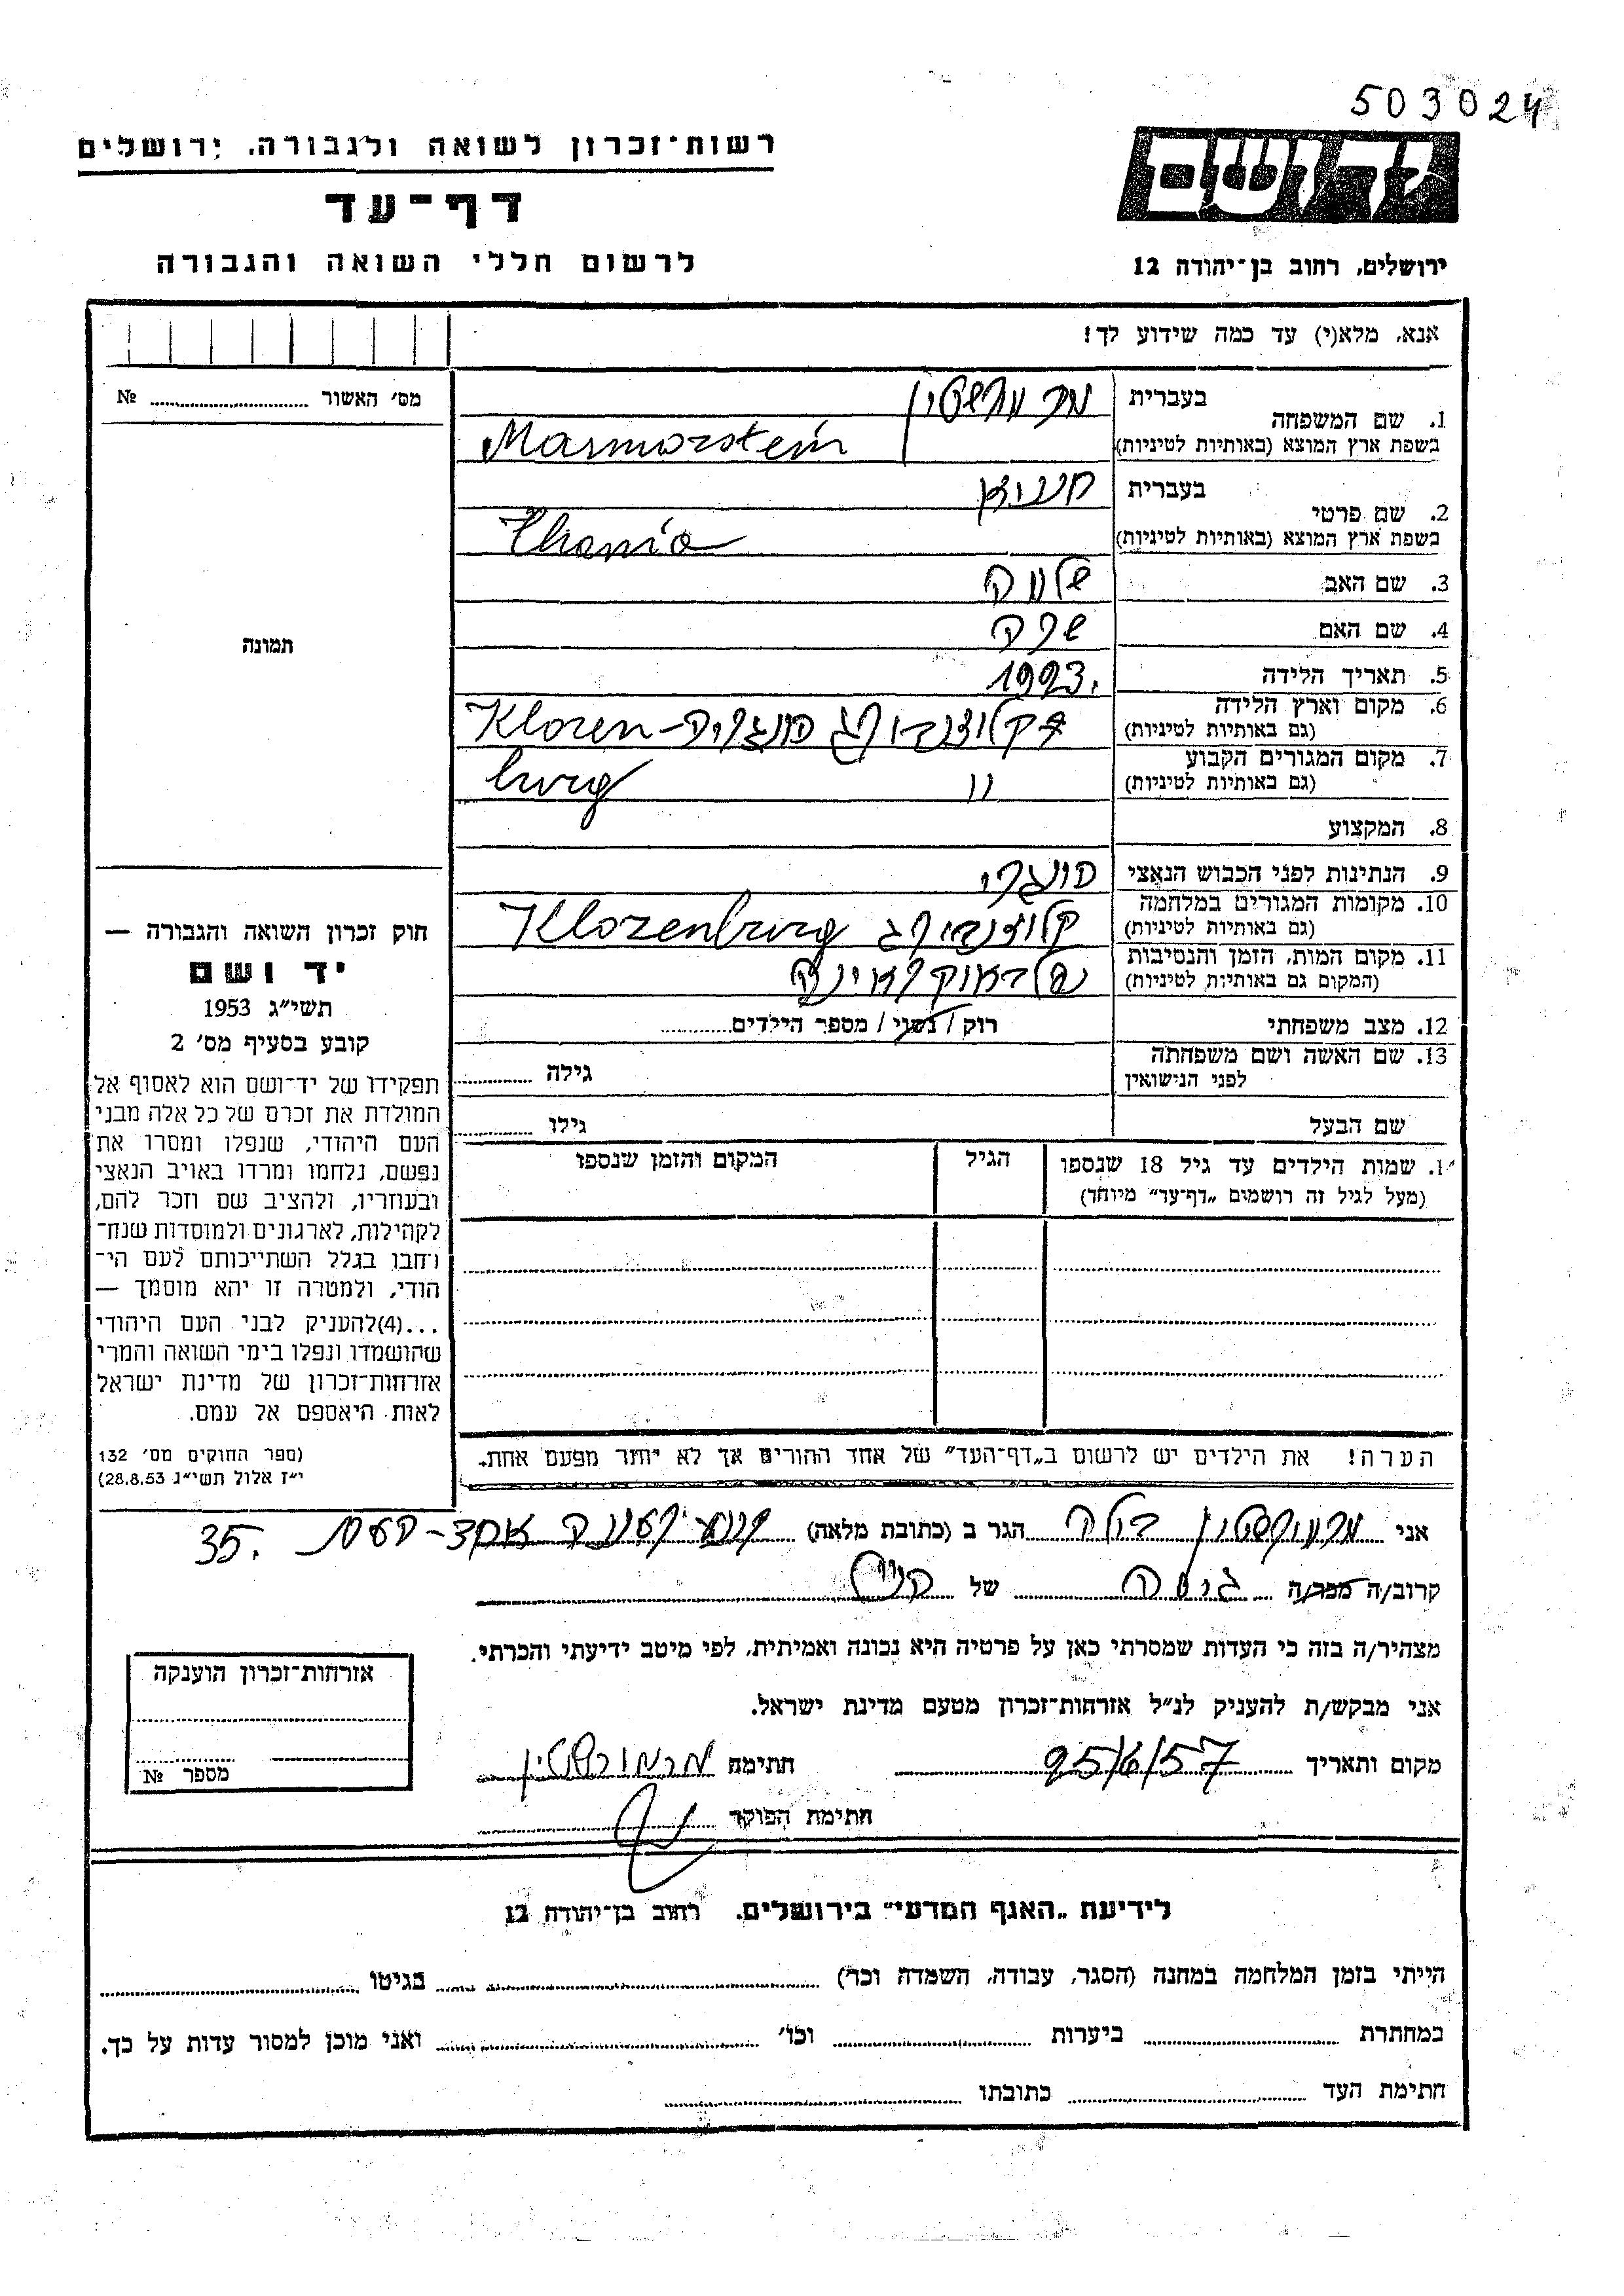 503024
יד ושם
ירושלים, רחוב בן־יהודה 12
רשות־זכרון לשואה ולגבורה, ירושלים
דף־עד
לרשום חללי השואה והגבורה
אנא, מלא(י) עד כמה שידוע לך!
מס׳ האשור № 
תמונה
1. שם המשפחה
בעברית
בשפת ארץ המוצא (באותיות לטיניות) Marmorstein
2. שם פרטי
בעברית
בשפת ארץ המוצא (באותיות לטיניות)
3. שם האב שלמה
4. שם האם שרה
5. תאריך הלידה 1923.
6. מקום וארץ הלידה
(גם באותיות לטיניות) הונגריה- Klozen
7. מקום המגורים הקבוע
(גם באותיות לטיניות) " burg
8. המקצוע
9. הנתינות לפני הכבוש הנאצי הונגרי
10. מקומות המגורים במלחמה
(גם באותיות לטיניות) קלוזנבורג Klozenburg
11. מקום המות, הזמן והנסיבות
(המקום גם באותיות לטיניות) באוקראינה
12. מצב משפחתי רוק / נשוי / מספר הילדים
13. שם האשה ושם משפחתה
לפני הנישואין
גילה
שם הבעל גילו
1. שמות הילדים עד גיל 18 שנספו
(מעל לגיל זה רושמים „דף־עד״ מיוחד)
הגיל
המקום והזמן שנספו
הערה! את הילדים יש לרשום ב„דף־העד״ של אחד ההורים אך לא יותר מפעם אחת.
חוק זכרון השואה והגבורה —
יד ושם
תשי״ג 1953
קובע בסעיף מס׳ 2
תפקידו של יד־ושם הוא לאסוף אל
המולדת את זכרם של כל אלה מבני
העם היהודי, שנפלו ומסרו את
נפשם, נלחמו ומרדו באויב הנאצי
ובעוזריו, ולהציב שם וזכר להם,
לקהילות, לארגונים ולמוסדות שנח־
רבו בגלל השתייכותם לעם הי־
הודי, ולמטרה זו יהא מוסמך —
...(4)להעניק לבני העם היהודי
שהושמדו ונפלו בימי השואה והמרי
אזרחות־זכרון של מדינת ישראל
לאות היאספם אל עמם.
(ספר החוקים מס׳ 132
י״ז אלול תשי״ג 28.8.53)
אני הגר ב (כתובת מלאה) 35.
קרוב/ה מכר/ה גיסה של
מצהיר/ה בזה כי העדות שמסרתי כאן על פרטיה היא נכונה ואמיתית, לפי מיטב ידיעתי והכרתי.
אני מבקש/ת להעניק לנ״ל אזרחות־זכרון מטעם מדינת ישראל.
מקום ותאריך 25/6/57 חתימה מרמורשטיין
חתימת הפוקד
אזרחות־זכרון הוענקה
מספר №
לידיעת „האגף המדעי״ בירושלים, רחוב בן־יהודה 12
הייתי בזמן המלחמה במחנה (הסגר, עבודה, השמדה וכד׳) בגיטו
במחתרת ביערות וכו׳ ואני מוכן למסור עדות על כך.
חתימת העד כתובתו